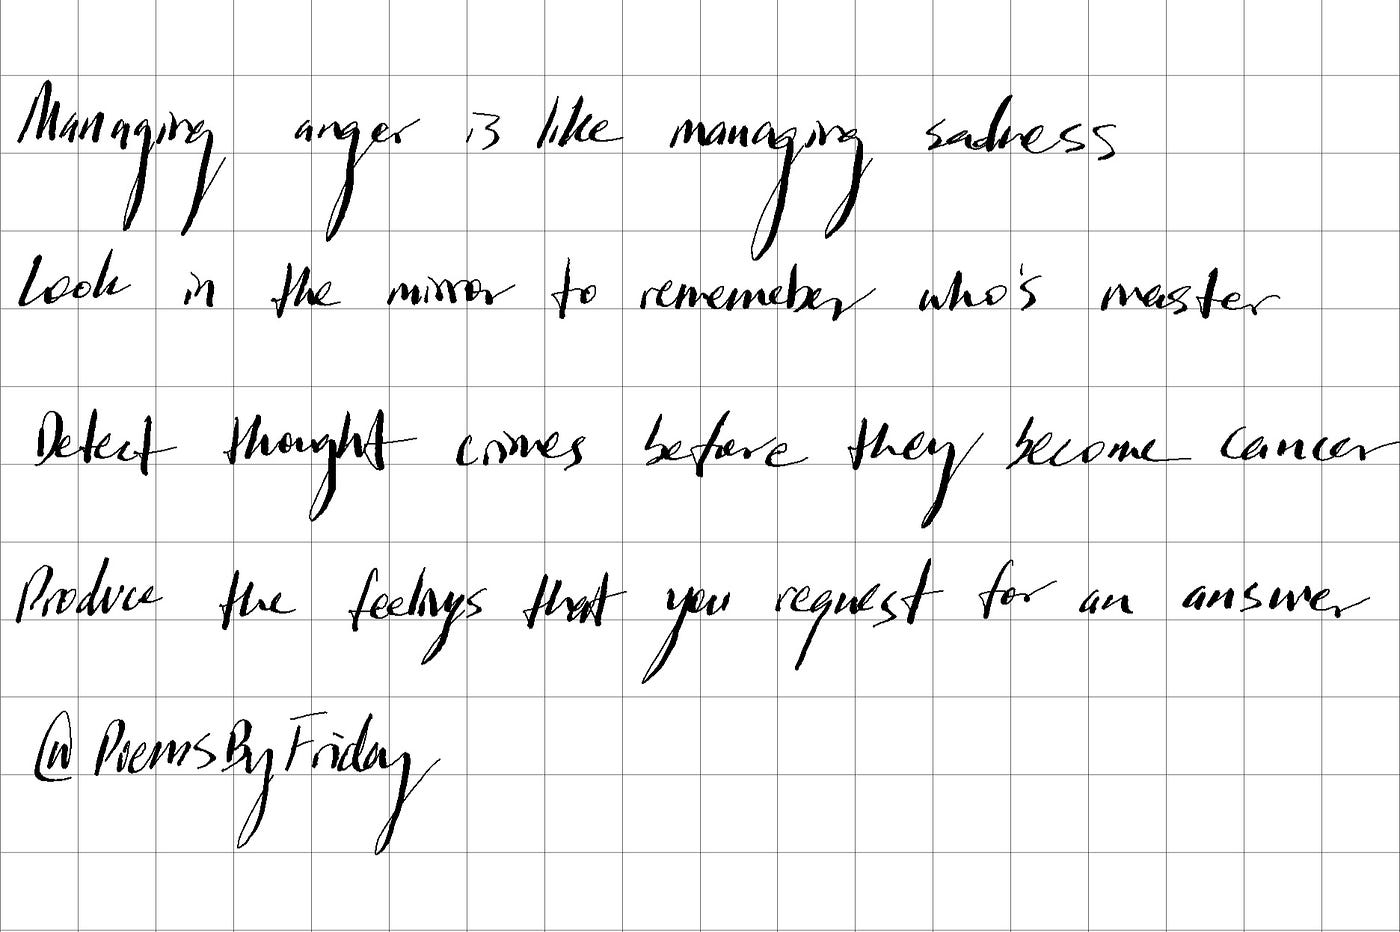 Managing anger is like managing sadness
Look in the mirror to rememeber who's master
Detect thought crimes before they become cancer
Produce the feelings that you request for an answer
@PoemsByFriday